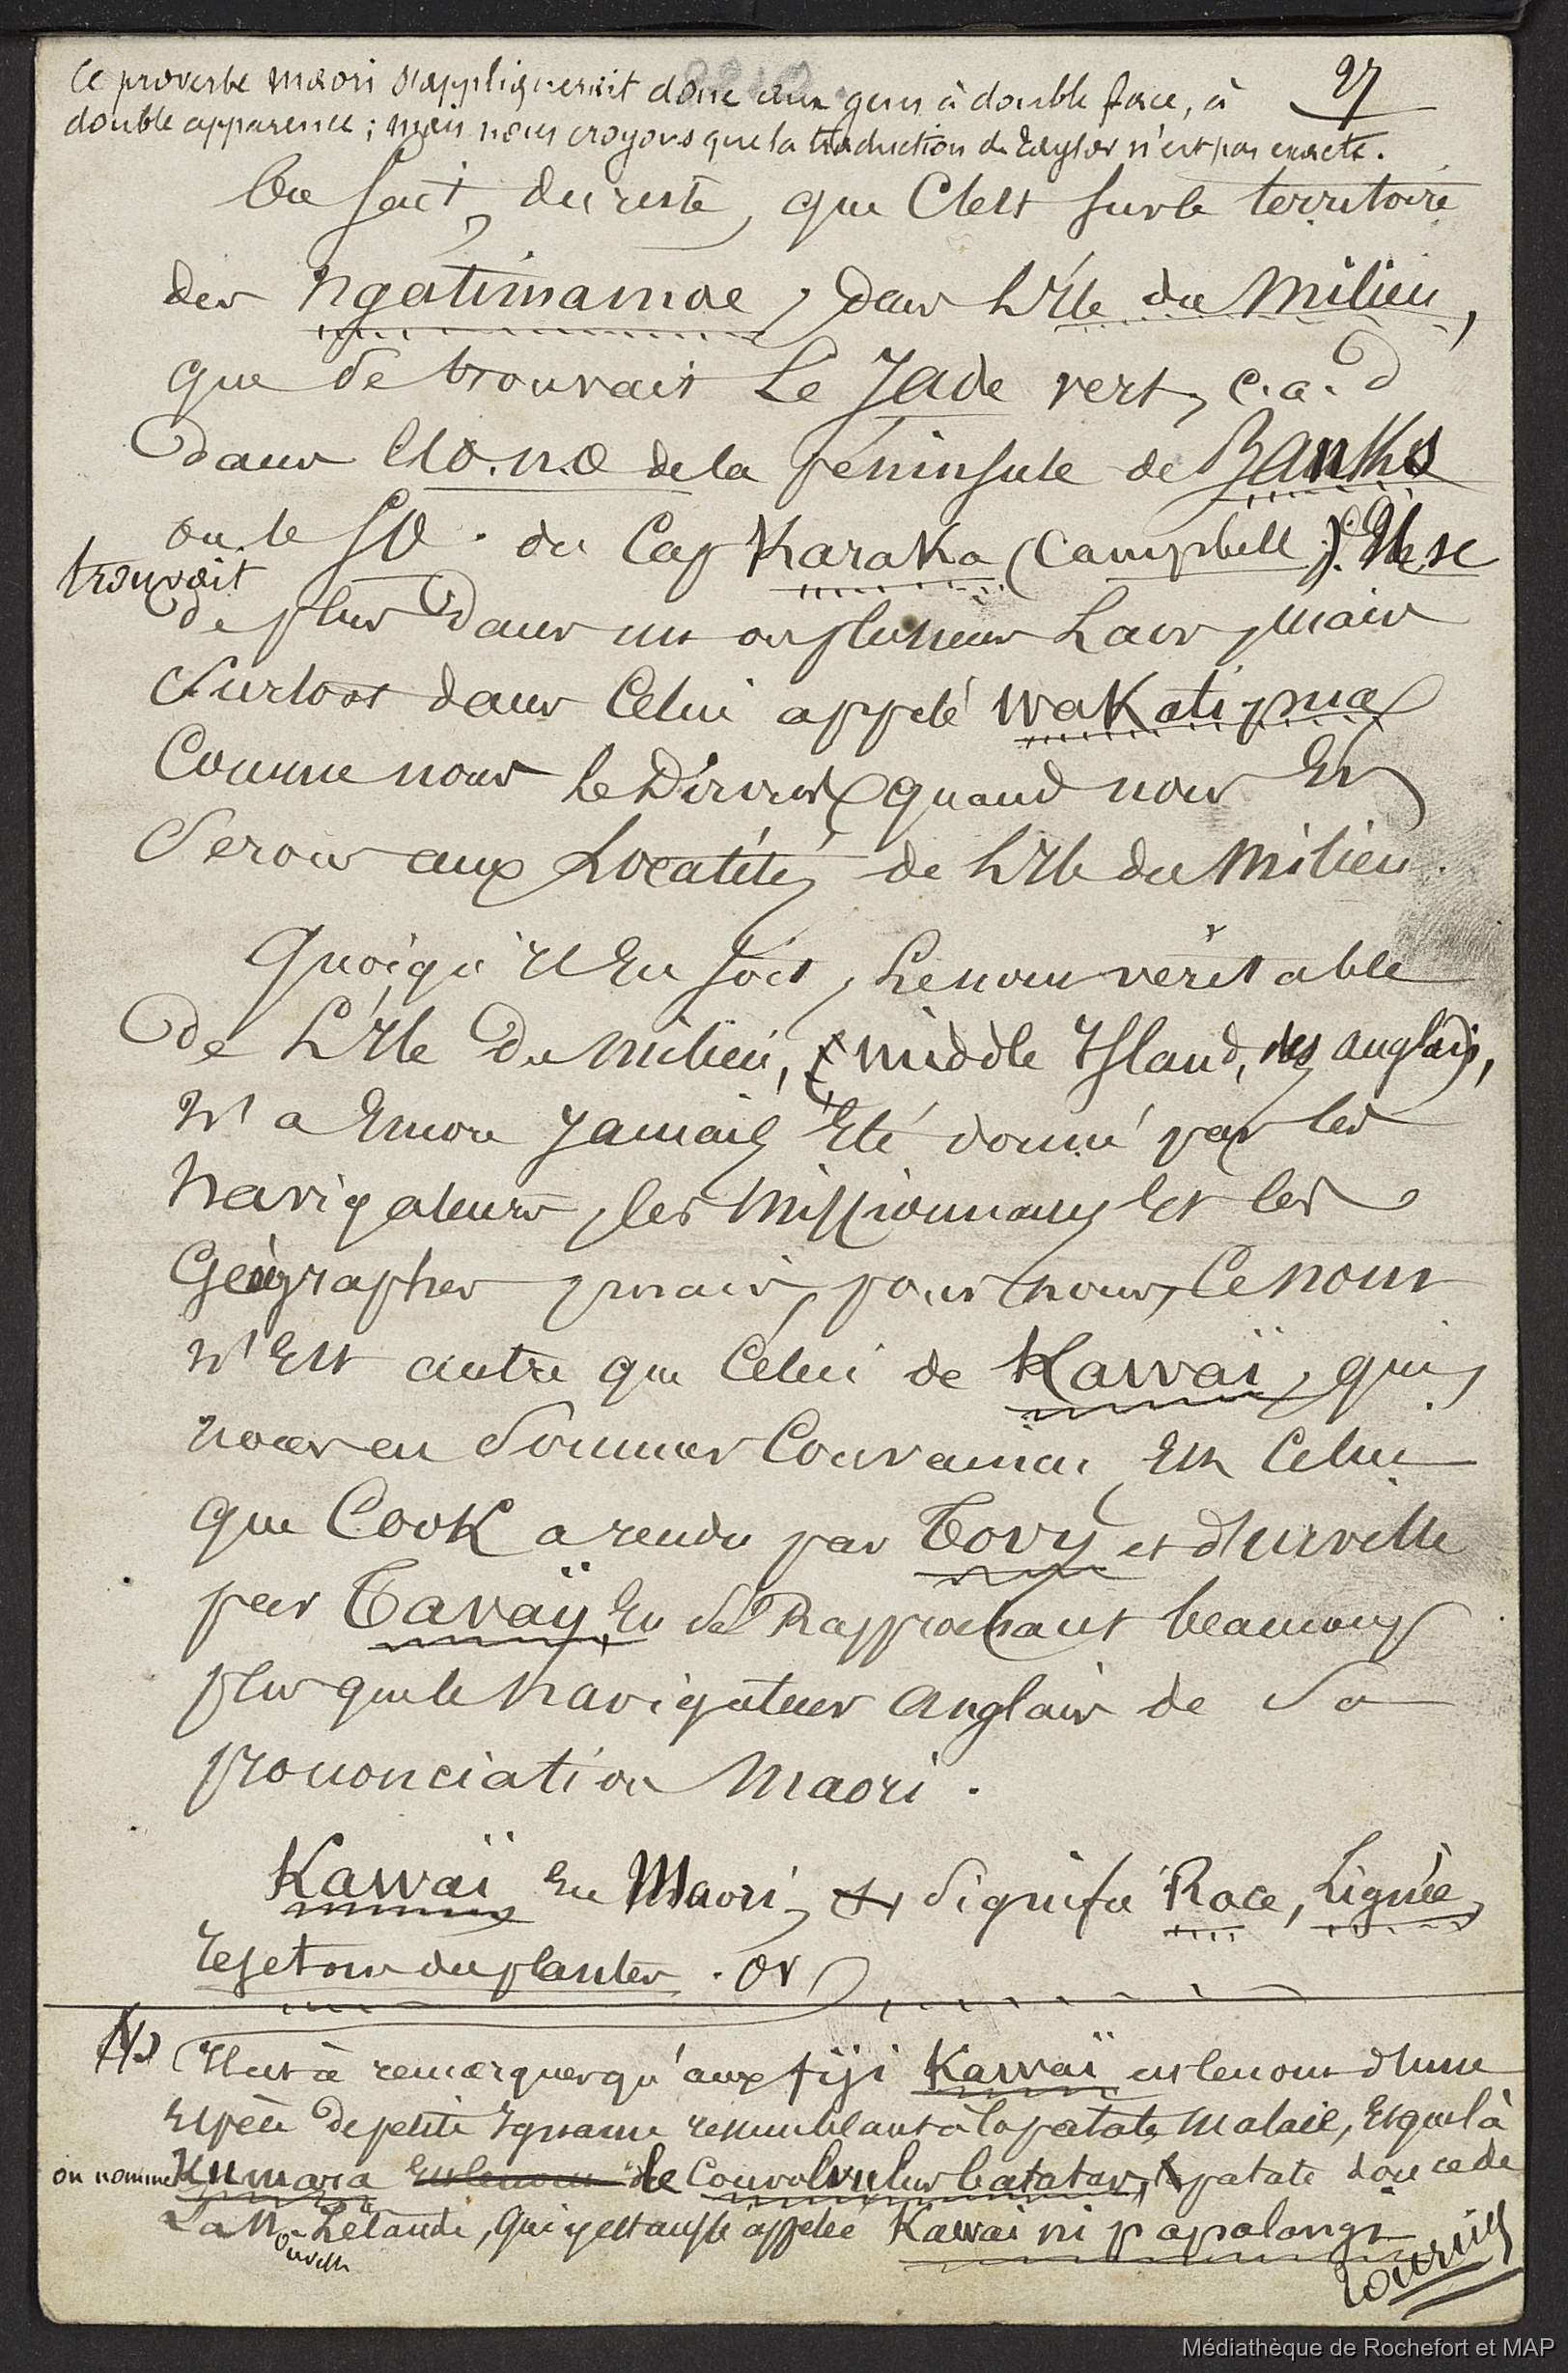 27
Ce proverbe maori s'appliquerait donc aux gens à double face, à
double apparence ; mais nous croyons que la traduction de Taylor n'est pas exacte.
On sait, du reste, que C'est sur le territoire
des Ngatimamoe, dans L'Ile du Milieu,
que se trouvait Le Jade vert, c.a.d
dans l'o.n.o de la péninsule de Banks
ou le SO. du Cap Karaka (Campbell). Il se
trouvait
de plus dans un ou plusieurs Lacs, mais
Surtout dans Celui appelé Wakatipua
Comme nous le Dirons quand nous En
Serons aux Localités de L'Ile du Milieu.
Quoiqu'il En soit, Le nom véritable
De L'Ile Du Milieu, (Middle Island, des anglais),
N'a Encore Jamais Eté donné par les
Navigateurs, les Missionnaires Et les
Géographes, mais, pour nous, Ce nom
N'Est autre que Celui de Kawaï, qui,
nous en Sommes Convaincu, Est Celui
que Cook a rendu par Tovy et d'Urville
par Tavaÿ, En se Rapprochant beaucoup
plus que le Navigateur Anglais de Sa
prononciation Maori.
Kawaï En Maori, Signifie Race, Lignée,
rejetons des plantes. Or
(1) Il est à remarquer qu'aux fiji Kawaï est le nom d'une
Espèce De petite Igname ressemblant à la patate Malaie, Et que là
on nomme Kumara Est le nom de le Convolvulus batatas, patate douce de
La Nouvelle Zélande, Qui y est aussi appelée Kawai ni papalangi
tournez
Médiathèque de Rochefort et MAP